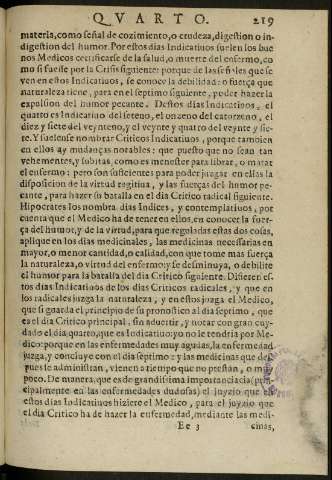 QVARTO. 219
materia, como señal de cozimiento, o crudeza, digestion o in-
digestion del humor. Por estos dias Indicatiuos suelen los bue
nos Medicos certificarse de la salud, o muerte del enfermo, co
mo si fuesse por la Crisis siguiente: porque de las señales que se
ven en estos Indicatiuos, se conoce la debilidad: o fuerça que
naturaleza tiene, para en el septimo siguiente, poder hazer la
expulsion del humor pecante. Destos dias Indicatiuos, el
quarto es Indicatiuo del seteno, el onzeno del catorzeno, el
diez y siete del veynteno, y el veynte y quatro del veynte y sie-
te. Y suelense nombrar Criticos Indicatiuos, porque tambien
en ellos ay mudanças notables: que puesto que no sean tan
vehementes, y subitas, como es menester para librar, o matar
el enfermo: pero son suficientes para poder juzgar en ellas la
disposicion de la virtud regitiua, y las fuerças del humor pe-
cante, para hazer su batalla en el dia Critico radical siguiente.
Hipocrates los nombra dias Indices, y contemplatiuos, por
cuenta que el Medico ha de tener en ellos, en conocer la fuer-
ça del humor, y de la virtud, para que reguladas estas dos cosas,
aplique en los dias medicinales, las medicinas necessarias en
mayor, o menor cantidad, o calidad, con que tome mas fuerça
la naturaleza, o virtud del enfermo: y se desminuya, o debilite
el humor para la batalla del dia Critico siguiente. Difieren es-
tos dias Indicatiuos de los dias Criticos radicales, y que en
los radicales juzga la naturaleza, y en estos juzga el Medico,
que si guarda el principio de su pronostico al dia septimo, que
es el dia Critico principal, sin aduertir, y notar con gran cuy-
dado el dia quarto, que es Indicatiuo: yo no le tendria por Me-
dico: porque en las enfermedades muy agudas, la enfermedad
juzga, y concluye con el dia septimo: y las medicinas que des
pues se administran, vienen a tiempo que no prestan, o muy
poco. De manera, que es de grandissima importancia (prin-
cipalmente en las enfermedades dudosas) el juyzio que en
estos dias Indicatiuos hiziere el Medico, para el juyzio que
el dia Critico ha de hazer la enfermedad, mediante las medi-
Ee 3 cinas,